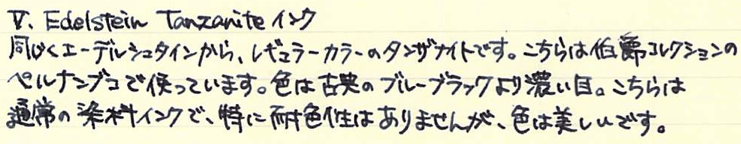 V. Edelstein Tanzanite インク
同じくエーデルシュタインから、レギュラーカラーのタンザナイトです。こちらは伯爵コレクションの
ペルナンブコで使っています。色は古典のブルーブラックより濃い目。こちらは
通常の染料インクで、特に耐色性はありませんが、色は美しいです。